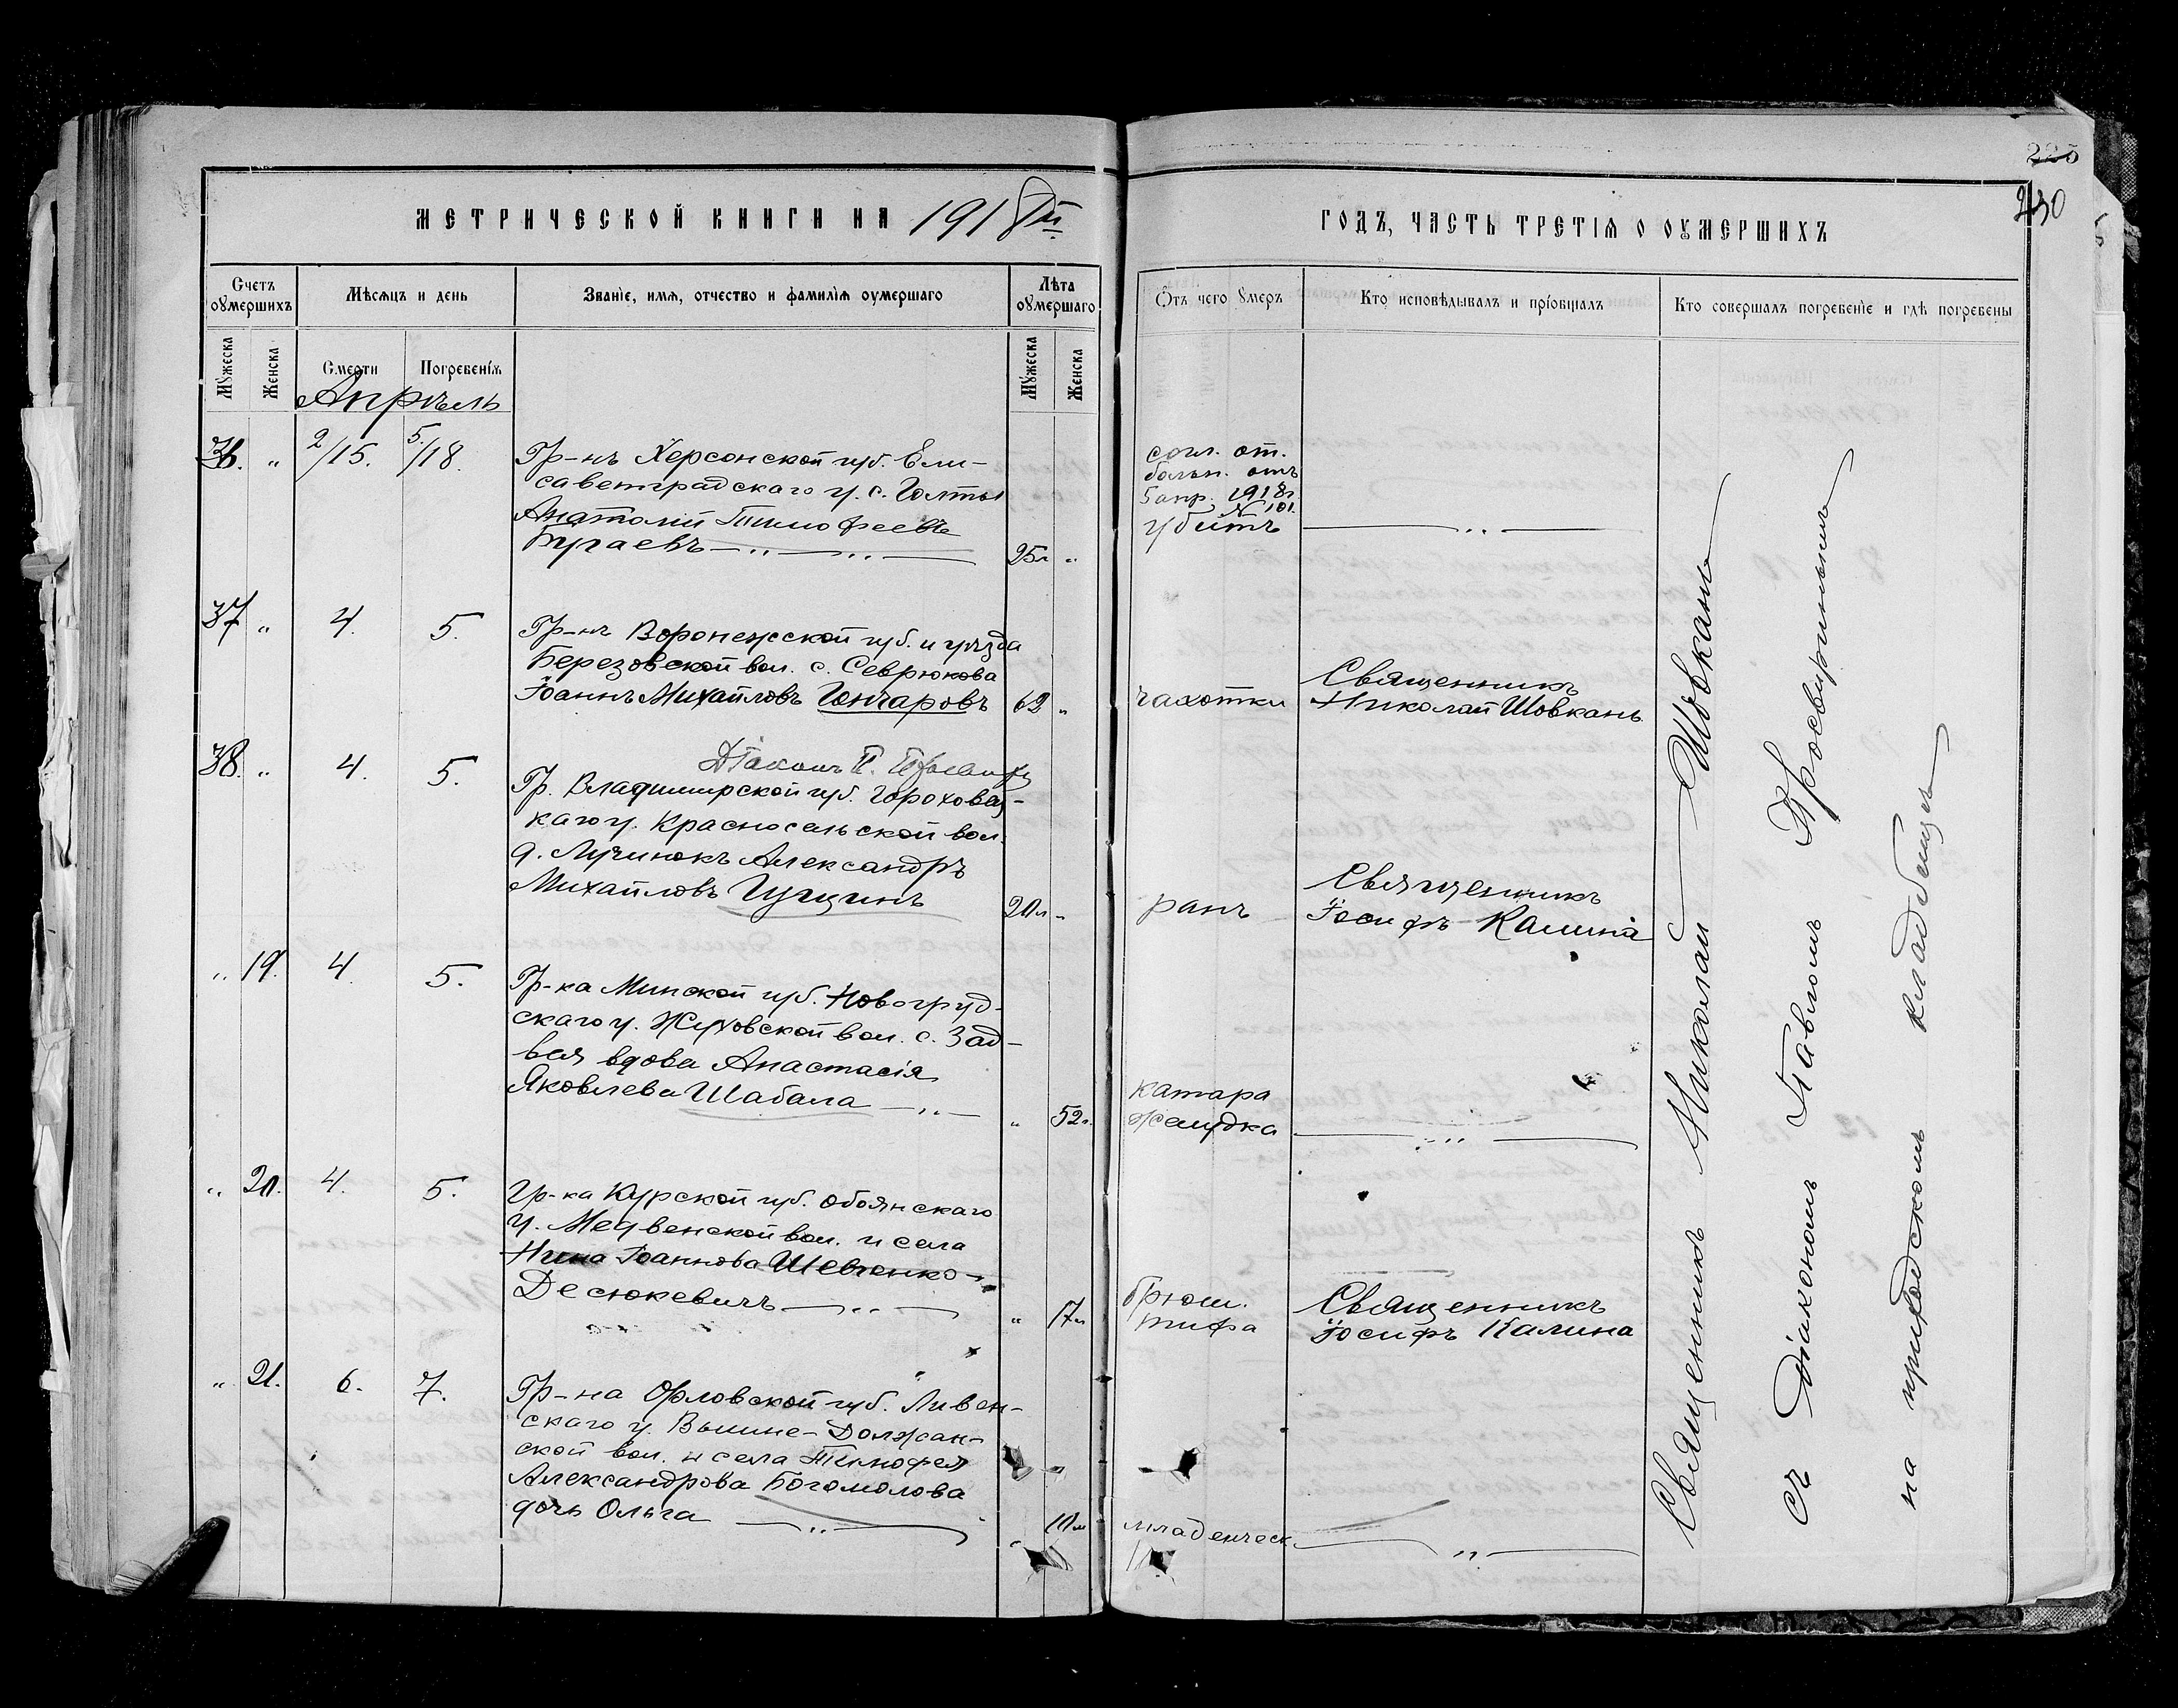 225
230
МЕТРИЧЕСКОЙ КНИГИ НА 1918й
ГОДЪ, ЧАСТЬ ТРЕТІѦ О ОУМЕРШИХЪ
Счетъ оумершихъ
Мѣсѧцъ и день
Званіе, имѧ, отчество и фамиліѧ оумершаго
Лѣта оумершаго
Мужеска
Женска
Смерти
Погребеніѧ
Мужеска
Женска
Ѿтъ чего умеръ
Кто исповѣдывалъ и пріобщалъ
Кто совершалъ погребеніе и гдѣ погребены
Апрѣль
36. " 2/15. 5/18.
Гр-нъ Херсонской губ. Ели-
саветградскаго у. с. Голты
Анатолій Тимофеевъ
Бугаевъ — " — " —
25 л "
согл. от.
больн. отъ
5 апр. 1918 г.
N 101.
убитъ
— " —
37 " 4. 5.
Гр-нъ Воронежской губ. и уѣзда
Березовской вол. с. Севрюкова
Іоаннъ Михайловъ Гончаровъ
62 "
чахотки
Священникъ
Николай Шовкань
Діаконъ П.
38. " 4. 5.
Гр. Владимирской губ. Горохове
каго у. Красносельской вол.
д. Лучинокъ Александръ
Михайловъ
20 л "
ранъ
Священникъ
Іосифъ Калина
" 19. 4. 5.
Гр-ка Минской губ. Новогруд-
скаго у. Жуховской вол. с. Зад-
вея вдова Анастасія
Яковлева Шабала — " —
" 52 л.
катара
желудка
— " —
" 20. 4. 5.
Гр-ка Курской губ. Обоянскаго
у. Медвенской вол. и села
Нина Іоаннова Шевченко-
Десюкевичъ — " —
" 17 л
брюш.
тифа
Священникъ
Іосифъ Калина
" 21. 6. 7.
Гр-на Орловской губ. Ливен-
скаго у. Вышне-Должан-
ской вол. и села Тимофея
Александрова Богомолова
дочь Ольга — " —
" 10 м
младенческ.
— " —
Священникъ Николай Шовкань
съ діакономъ Павломъ Просвирнинымъ
на приходскомъ кладбищѣ